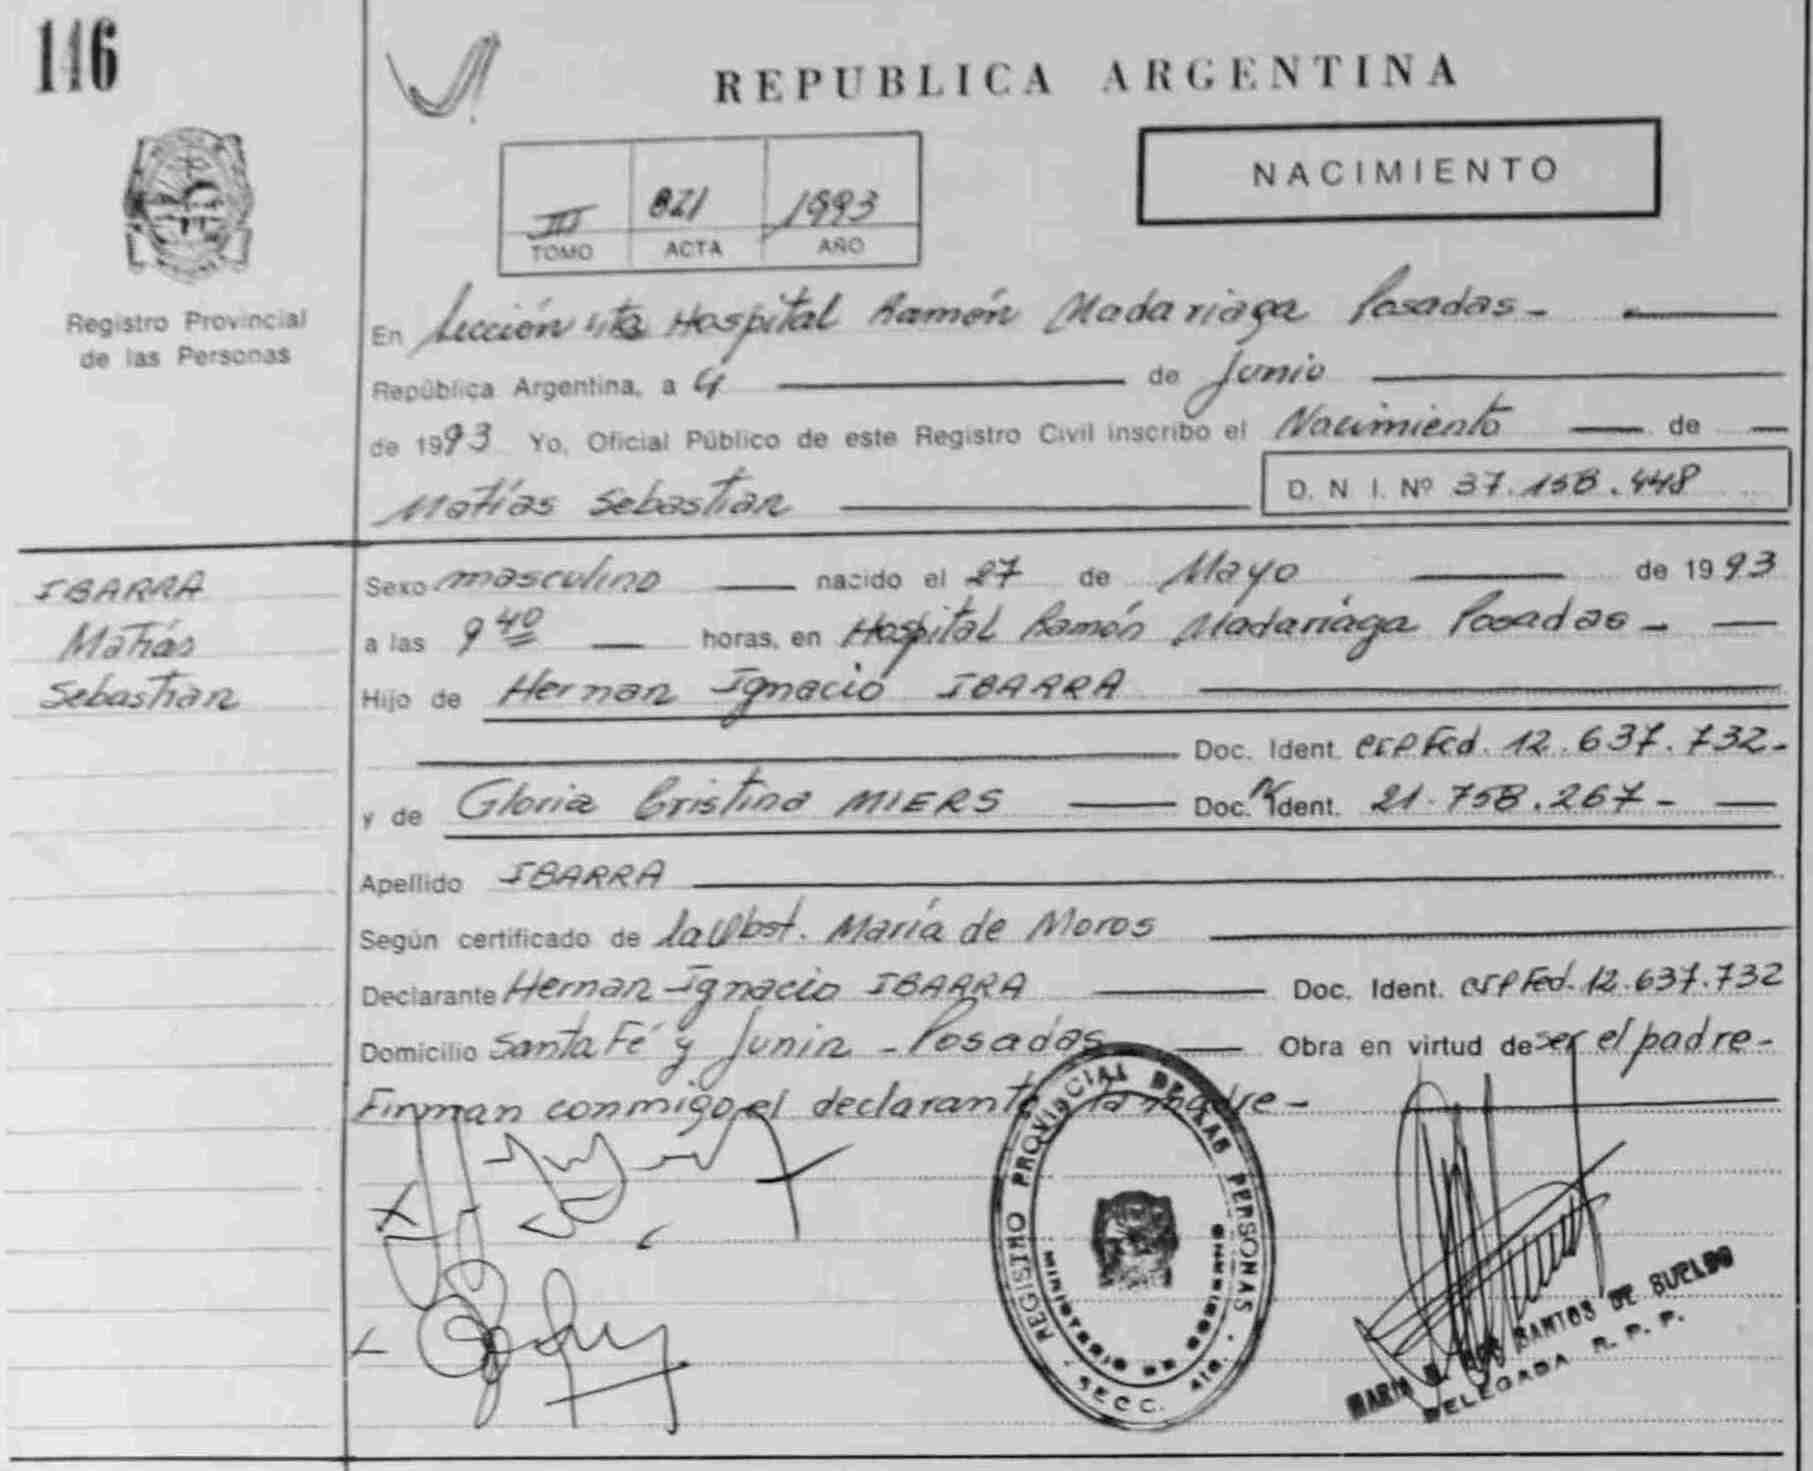 146
REPUBLICA ARGENTINA
NACIMIENTO
III 821 1993
TOMO ACTA AÑO
Registro Provincial
de las Personas
En Sección 4ta Hospital Ramón Madariaga Posadas -
República Argentina, a 4 de Junio
de 1993 Yo, Oficial Público de este Registro Civil inscribo el Nacimiento de
Matías Sebastian D. N I. Nº 37.158.448
IBARRA
Matías
Sebastian
Sexo masculino nacido el 27 de Mayo de 1993
a las 9 40 horas, en Hospital Ramón Madariaga Posadas -
Hijo de Hernan Ignacio IBARRA
Doc. Ident. Fed. 12.637.732-
y de Gloria Cristina MIERS Doc. Ident. 21.758.267 -
Apellido IBARRA
Según certificado de la Obst. María de Moros
Declarante Hernan Ignacio IBARRA Doc. Ident. Fed. 12.637.732
Domicilio Santa Fé y Junin - Posadas Obra en virtud de ser el padre -
Firman conmigo el declarante la madre -
REGISTRO PROVINCIAL DE LAS PERSONAS
MINISTERIO DE GOBIERNO
SECC. 4ta.
SANTOS DE SUELDO
DELEGADA R. P. P.